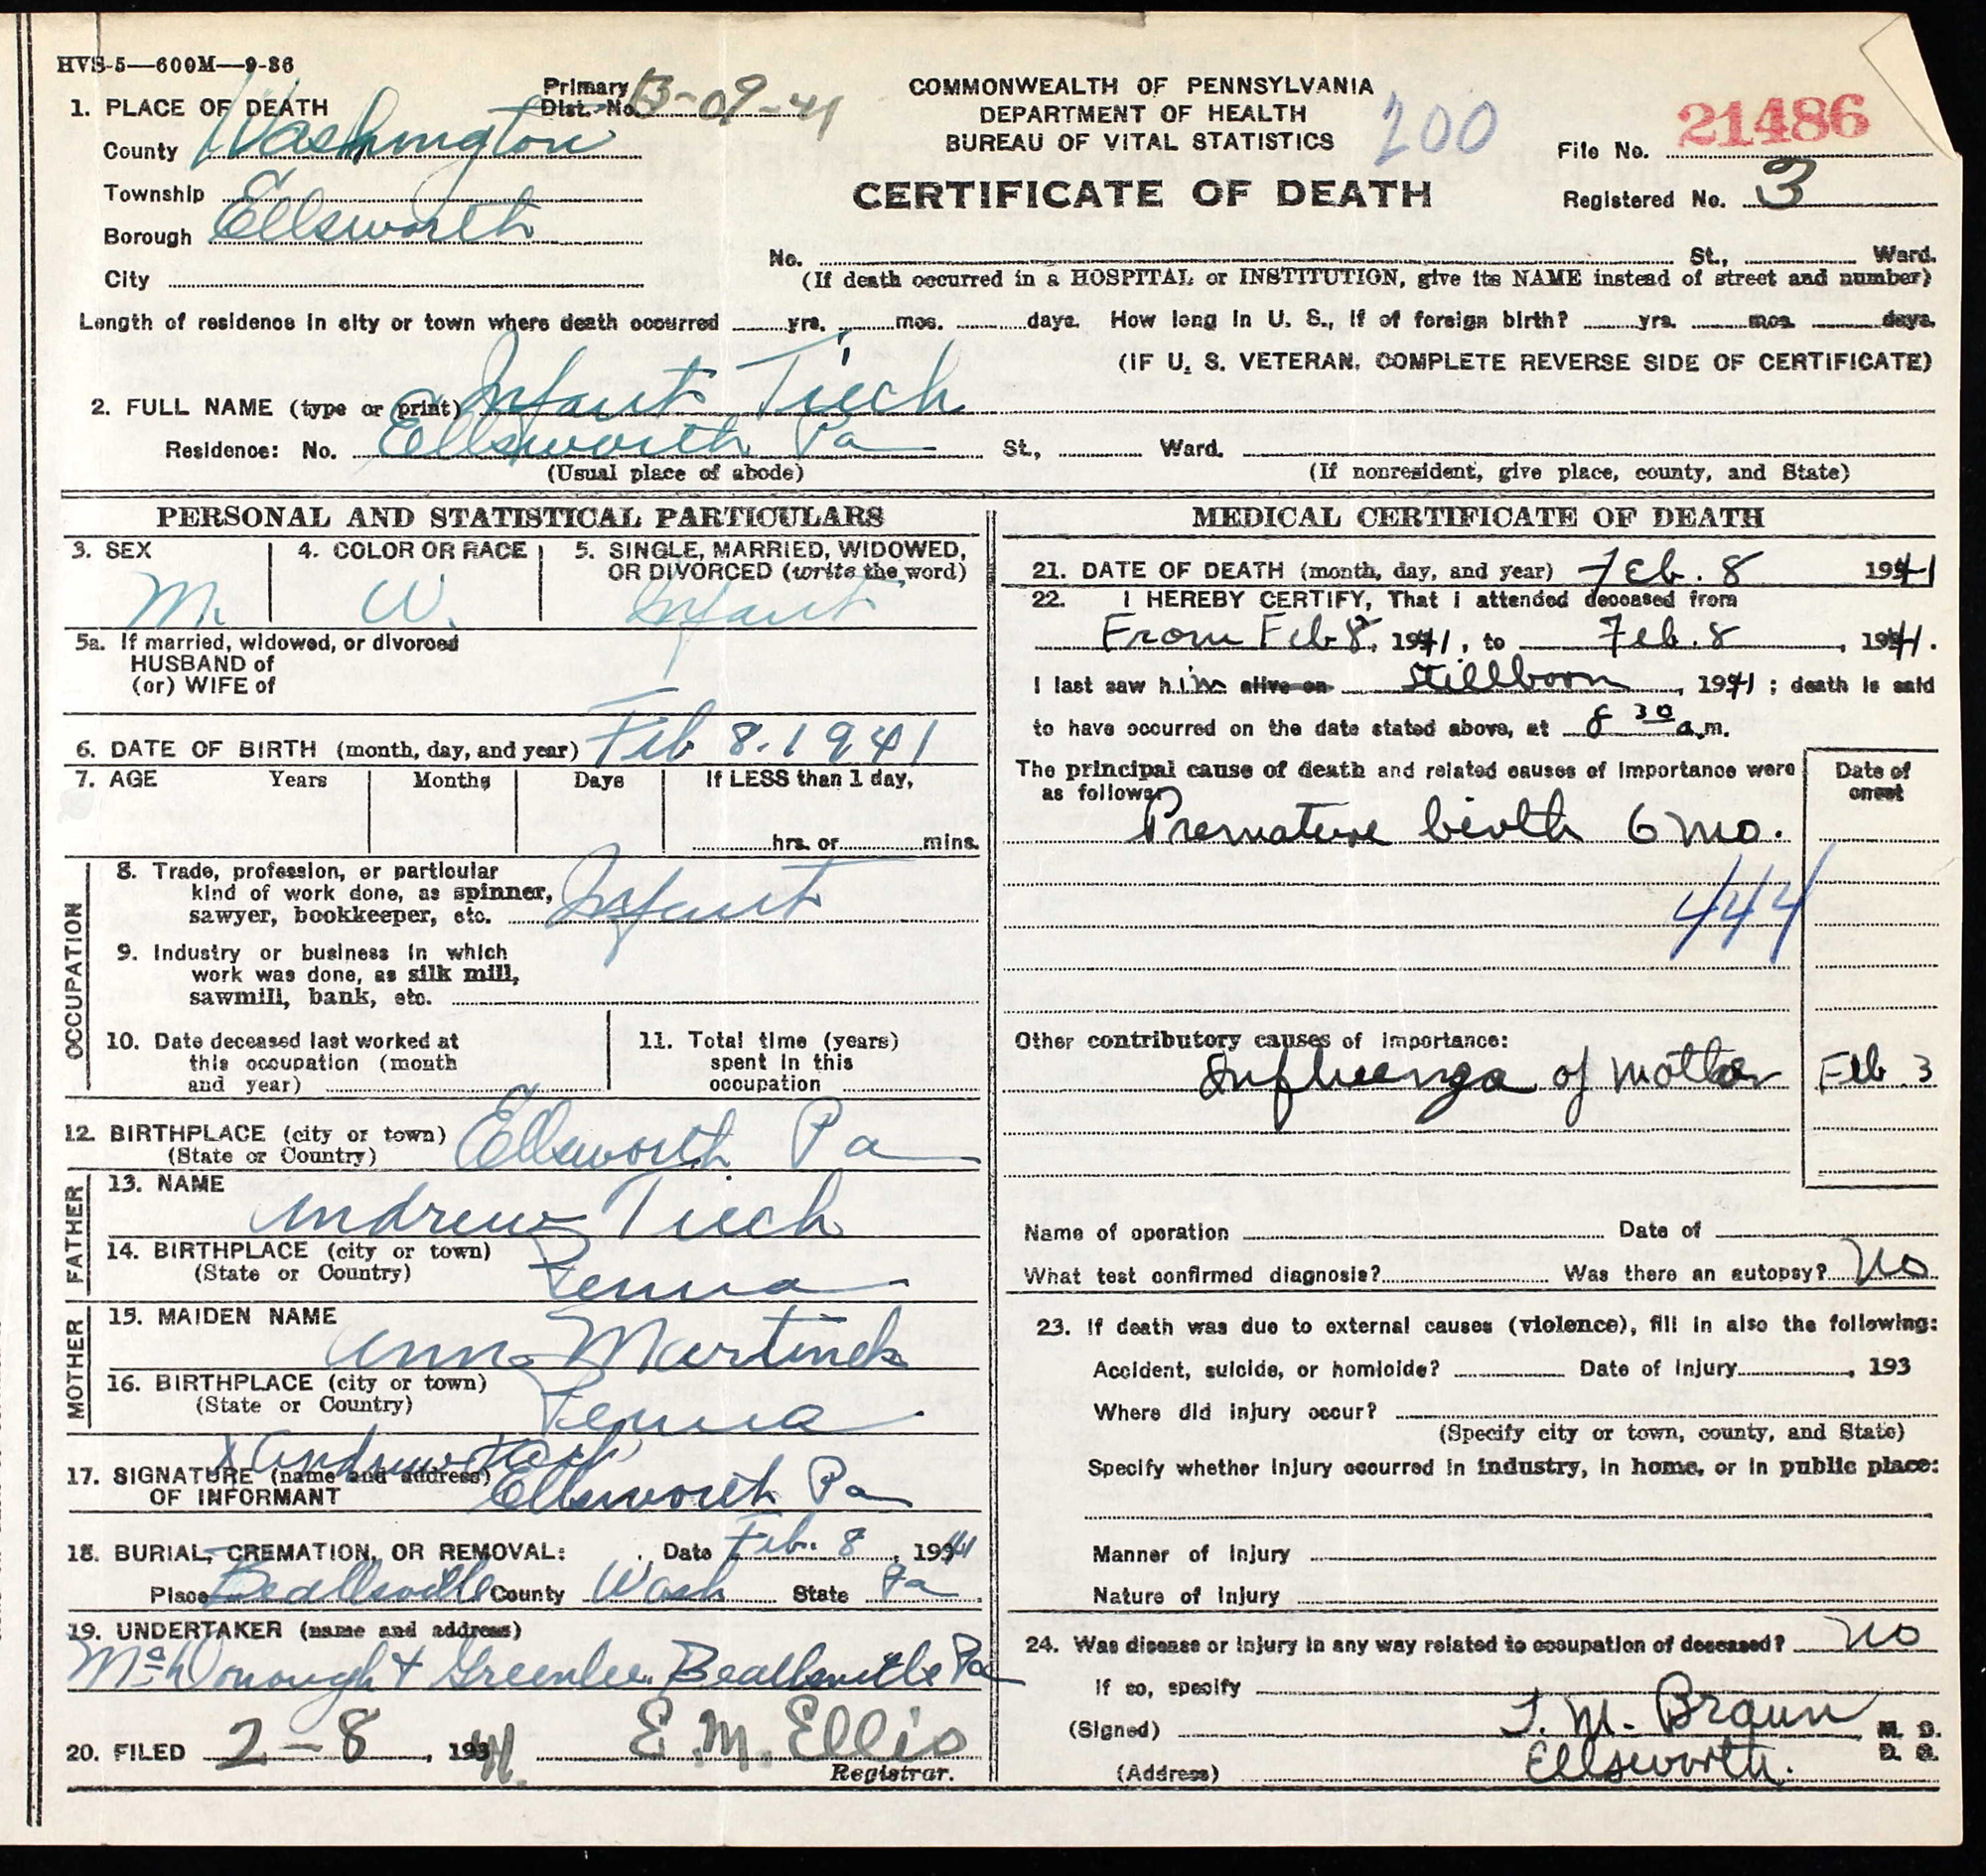 HVS-5—600M—9-36
COMMONWEALTH OF PENNSYLVANIA
DEPARTMENT OF HEALTH
BUREAU OF VITAL STATISTICS
200
CERTIFICATE OF DEATH
Primary Dist. No. 63-09-41
File No. 21486
Registered No. 3
1. PLACE OF DEATH
County Washington
Township
Borough Ellsworth
City
No. St., Ward.
(If death occurred in a HOSPITAL or INSTITUTION, give its NAME instead of street and number)
Length of residence in city or town where death occurred yrs. mos. days. How long in U. S., if of foreign birth? yrs. mos. days.
(IF U. S. VETERAN, COMPLETE REVERSE SIDE OF CERTIFICATE)
2. FULL NAME (type or print) Infant Tiech
Residence: No. Ellsworth Pa St., Ward.
(Usual place of abode) (If nonresident, give place, county, and State)
PERSONAL AND STATISTICAL PARTICULARS
3. SEX M.
4. COLOR OR RACE W.
5. SINGLE, MARRIED, WIDOWED,
OR DIVORCED (write the word) Infant
5a. If married, widowed, or divorced
HUSBAND of
(or) WIFE of
6. DATE OF BIRTH (month, day, and year) Feb 8. 1941
7. AGE Years Months Days If LESS than 1 day,
hrs. or mins.
OCCUPATION
8. Trade, profession, or particular
kind of work done, as spinner,
sawyer, bookkeeper, etc. Infant
9. Industry or business in which
work was done, as silk mill,
sawmill, bank, etc.
10. Date deceased last worked at
this occupation (month
and year)
11. Total time (years)
spent in this
occupation
12. BIRTHPLACE (city or town) Ellsworth Pa
(State or Country)
FATHER
13. NAME Andrew Tiech
14. BIRTHPLACE (city or town) Penna
(State or Country)
MOTHER
15. MAIDEN NAME Ann Martinek
16. BIRTHPLACE (city or town) Penna
(State or Country)
X Andrew
17. SIGNATURE (name and address)
OF INFORMANT Ellsworth Pa
18. BURIAL, CREMATION, OR REMOVAL: Date Feb. 8, 1941
Place Beallsville County Wash State Pa
19. UNDERTAKER (name and address)
McDonough & Greenlee Beallsville Pa
20. FILED 2-8, 1941 E. M. Ellis
Registrar.
MEDICAL CERTIFICATE OF DEATH
21. DATE OF DEATH (month, day, and year) Feb. 8 1941
22. I HEREBY CERTIFY, That I attended deceased from
From Feb 8, 1941, to Feb. 8, 1941.
I last saw him alive on stillborn, 1941; death is said
to have occurred on the date stated above, at 8 30 a.m.
The principal cause of death and related causes of importance were
as follows: Date of onset
Premature birth 6 mo.
444
Other contributory causes of importance:
Influenza of mother Feb. 3
Name of operation Date of
What test confirmed diagnosis? Was there an autopsy? No
23. If death was due to external causes (violence), fill in also the following:
Accident, suicide, or homicide? Date of injury, 193
Where did injury occur?
(Specify city or town, county, and State)
Specify whether injury occurred in industry, in home, or in public place:
Manner of injury
Nature of injury
24. Was disease or injury in any way related to occupation of deceased? no
If so, specify
(Signed) J. M. Braun M. D.
D. O.
(Address) Ellsworth.